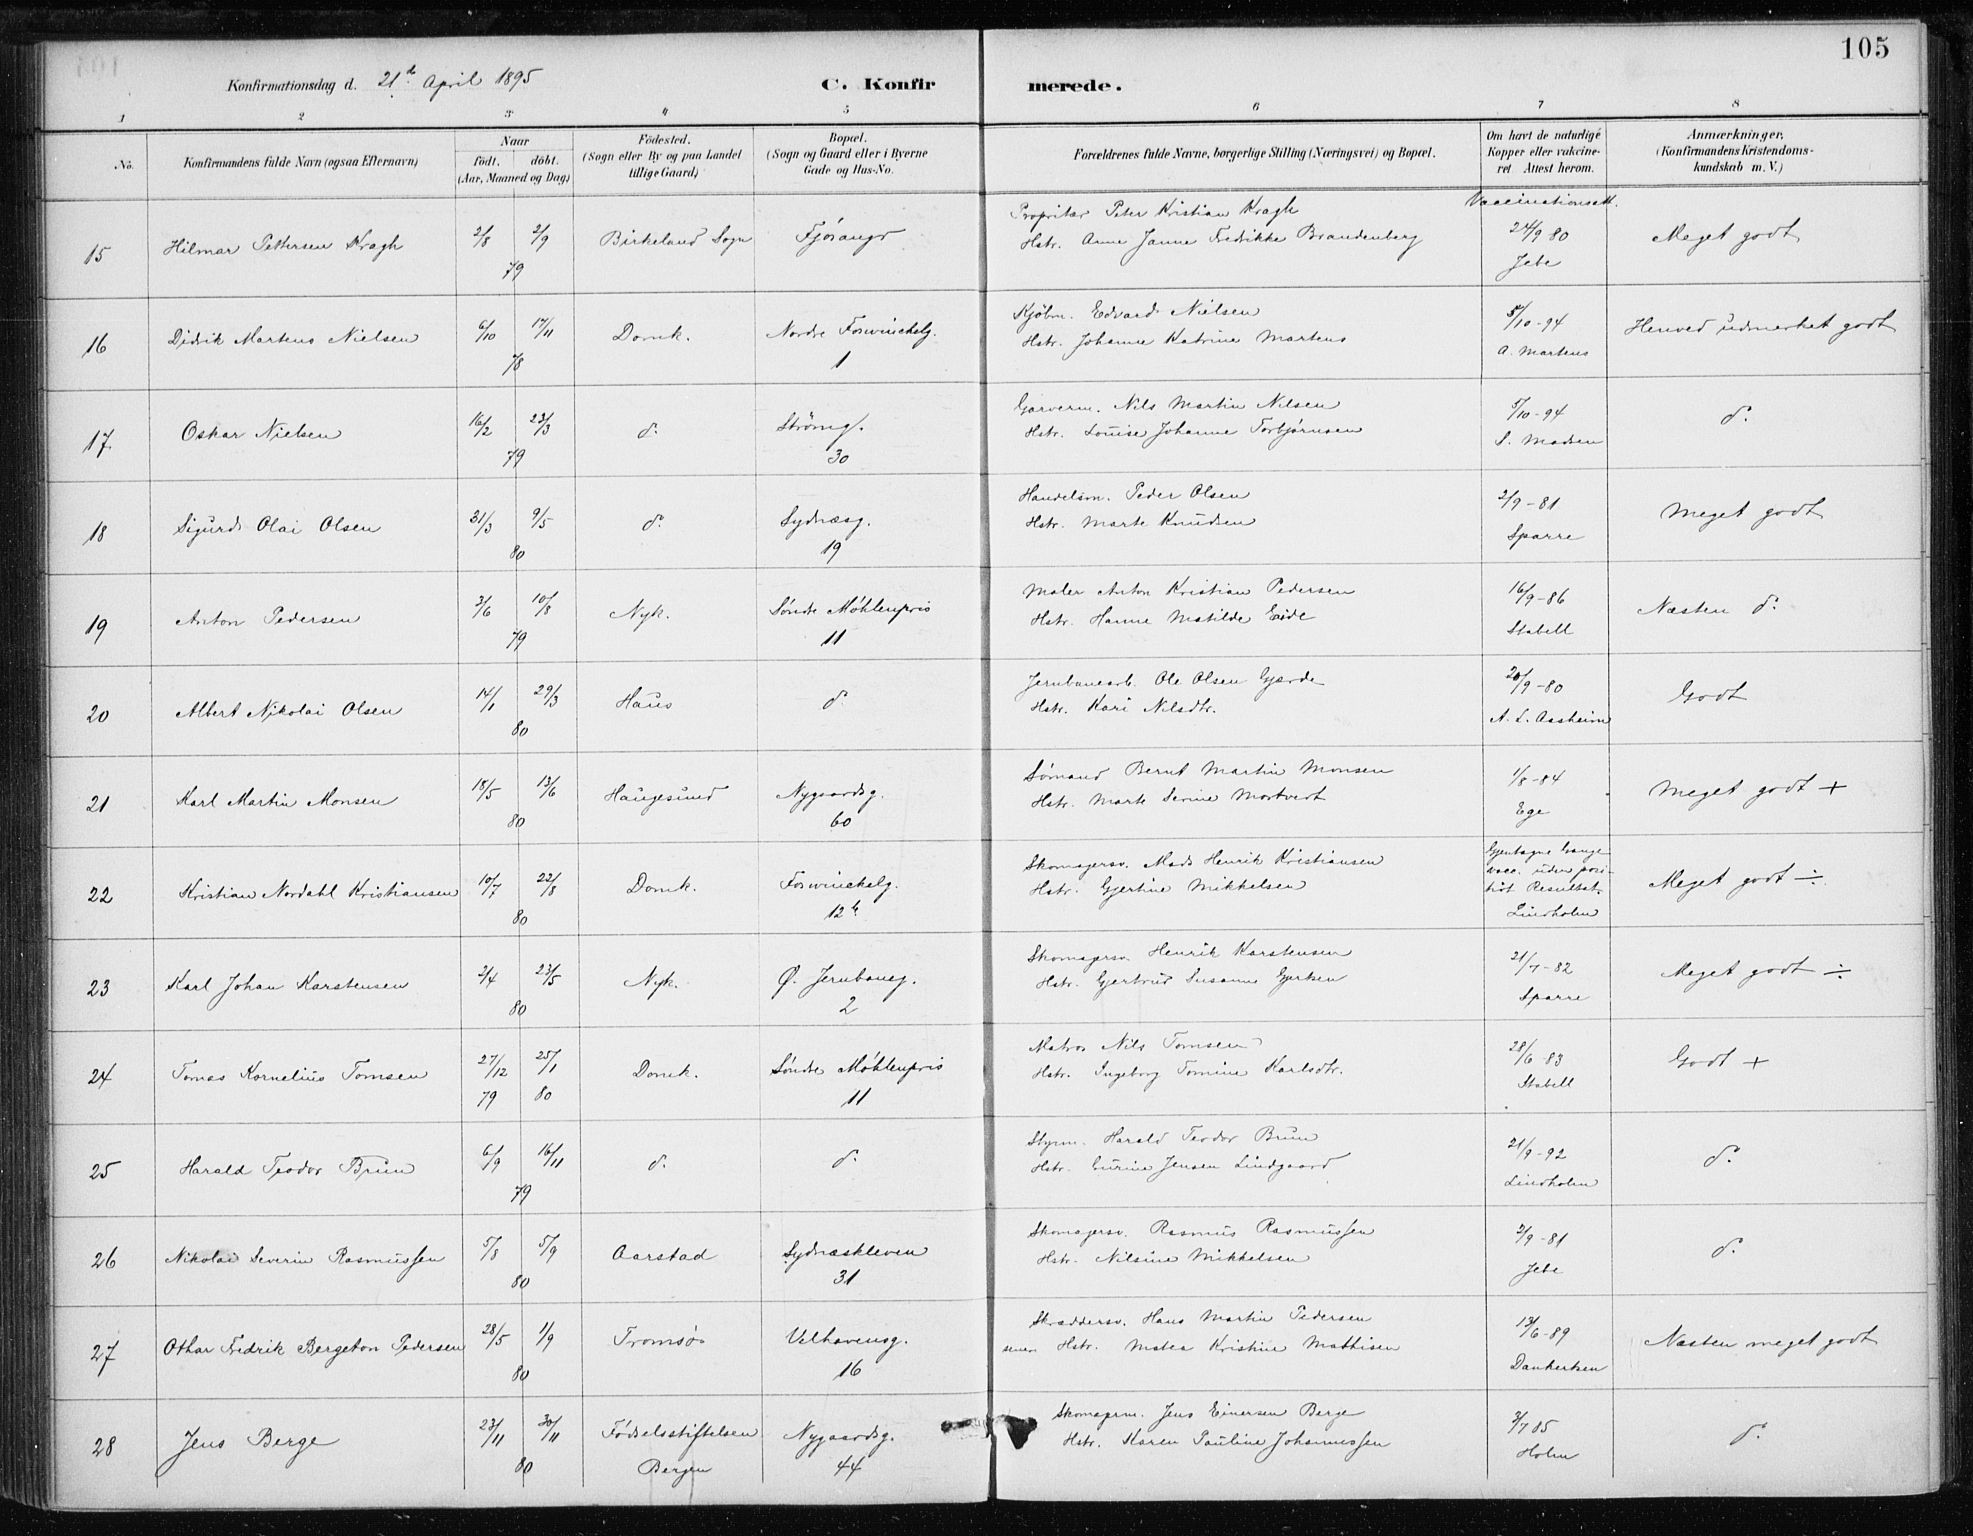 105
Konfirmationsdag d. 21de April 1895
C. Konfirmerede.
1 2 3 4 5 6 7 8
No.
Konfirmandens fulde Navn (ogsaa Efternavn)
Naar
födt. döbt.
(Aar, Maaned og Dag)
Födested.
(Sogn eller By og paa Landet
tillige Gaard)
Bopæl.
(Sogn og Gaard eller i Byerne
Gade og Hus-No.
Forældrenes fulde Navne, borgerlige Stilling (Næringsvei) og Bopæl.
Om havt de naturlige
Kopper eller vakcine-
ret Attest herom.
Anmærkninger,
(Konfirmandens Kristendoms-
kundskab m. V.)
Vaccinationsatt.
15 Hilmar Pettersen Kragh 2/8 2/9 79 Birkeland Sogn Fjösanger
Propritær Peter Kristian Kragh
Hstr. Anne Janna Fredrikke Brandenberg
24/9 80
Jebe
Meget godt
16 Didrik Martens Nielsen 6/10 17/11 78 Domk. Nordre Foswinckelg. 1
Kjöbm. Edvard Nielsen
Hstr. Johanne Katrine Martens
5/10-94
A. Martens
Henved udmerket godt
17 Oskar Nielsen 16/2 23/3 79 d. Strömg. 30
Garverm. Nils Martin Nilsen
Hstr. Louise Johanne Torbjörnsen
5/10-94
S. Madsen
d.
18 Sigurd Olai Olsen 31/3 9/5 80 d. Sydnæsg. 19
Handelsm. Peder Olsen
Hstr. Marte Knudsen
2/9-81
Sparre
Meget godt
19 Anton Pedersen 3/6 10/8 79 Nyk. Söndre Möhlenpris 11
Maler Anton Kristian Pedersen
Hstr. Hanne Matilde Eide
16/9-86
Stabell
Næsten d.
20 Albert Nikolai Olsen 14/1 29/3 80 Haus d.
Jernbanearb. Ole Olsen Gjærde
Hstr. Kari Nilsdtr.
20/9-80
A. L. Aasheim
Godt
21 Karl Martin Monsen 18/5 13/6 80 Haugesund Nygaardsg. 60
Sömand Bernt Martin Monsen
Hstr. Marte Serine Mortvert
1/8-84
Ege
Meget godt +
22 Kristian Nordahl Kristiansen 10/7 22/8 80 Domk. Foswinckelg. 12b
Skomagersv. Mads Henrik Kristiansen
Hstr. Gjertine Mikkelsen
Gjentagne Gange
vacc. uden posi-
tivt Resultat.
Lindholm
Meget godt ÷
23 Karl Johan Karstensen 2/4 23/5 80 Nyk. Ø. Jernbaneg. 2
Skomagersv. Henrik Karstensen
Hstr. Gjertrud Susanne Gjertsen
21/7-82
Sparre
Meget godt ÷
24 Tomas Kornelius Tomsen 27/12 79 25/1 80 Domk. Söndre Möhlenpris 11
Matros Nils Tomsen
Hstr. Ingeborg Tomine Karlsdtr.
28/6-83
Stabell
Godt +
25 Harald Teodor Brun 6/9 16/11 79 d. d.
Styrm. Harald Teodor Brun
Hstr. Jensen Lindgaard
21/9-92
Lindholm
d.
26 Nikolai Severin Rasmussen 5/8 5/9 80 Aarstad Sydnæskleven 31
Skomagersv. Rasmus Rasmussen
Hstr. Nilsine Mikkelsen
2/9-81
Jebe
d.
27 Othar Fredrik Bergeton Pedersen 28/5 1/9 80 Tromsö Velhavensg. 16
Skræddersv. Hans Martin Pedersen
Hstr. Matea Kristine Mathisen
13/6-89
Dankertsen
Næsten meget godt
28 Jens Berge 23/11 30/11 80 Födselsstiftelsen Bergen Nygaardsg. 44
Skomagerm. Jens Einersen Berge
Hstr. Karen Pauline Johannessen
3/7 85
Holm
d.